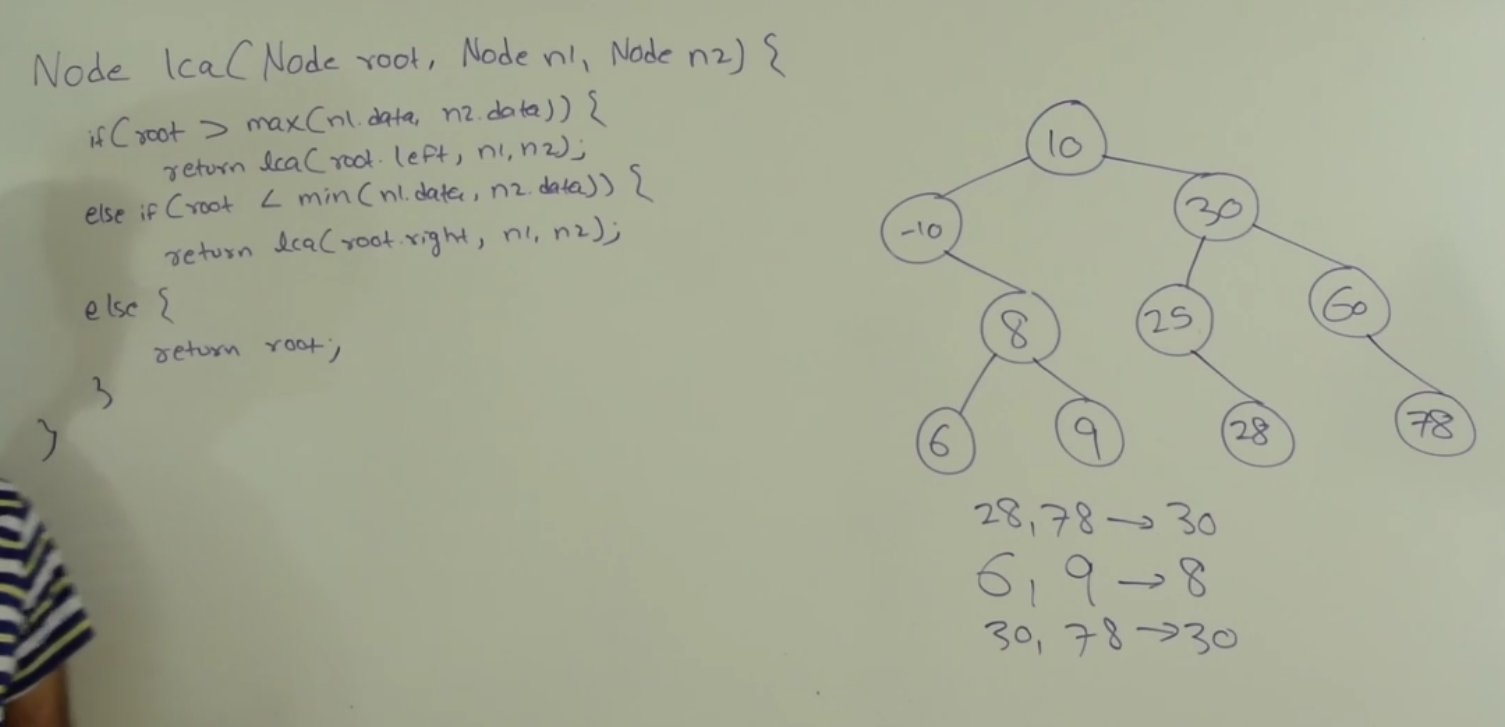 Node lca(Node root, Node n1, Node n2) {
if(root > max(n1.data, n2.data)) {
return lca(root.left, n1, n2);
else if(root < min(n1.data, n2.data)) {
return lca(root.right, n1, n2);
else {
return root;
}
}
10
-10
30
8
25
60
6
9
28
78
28, 78 → 30
6, 9 → 8
30, 78 → 30